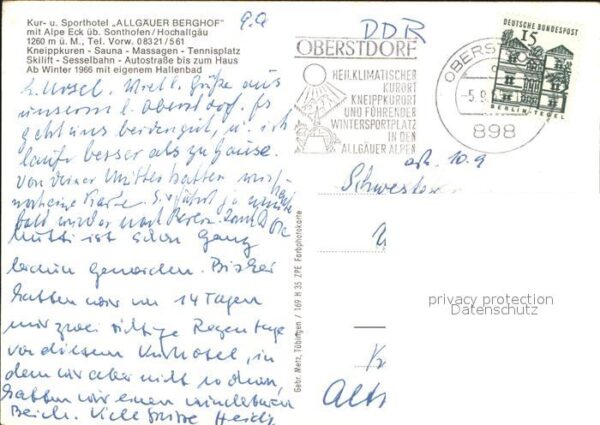 Kur- u. Sporthotel „ALLGÄUER BERGHOF"
mit Alpe Eck üb. Sonthofen / Hochallgäu
1260 m ü. M., Tel. Vorw. 08321/561
Kneippkuren - Sauna - Massagen - Tennisplatz
Skilift - Sesselbahn - Autostraße bis zum Haus
Ab Winter 1966 mit eigenem Hallenbad
9.9
DDR
OBERSTDORF
HEILKLIMATISCHER
KURORT
KNEIPPKURORT
UND FÜHRENDER
WINTERSPORTPLATZ
IN DEN
ALLGÄUER ALPEN
OBERST
-5.9.
898
DEUTSCHE BUNDESPOST
15
BERLIN-TEGEL
L. Ursel. Grüße aus
unserem l. Oberstdorf. Es
geht uns u. ich
laufe besser als zu Hause.
Von Deiner Mutter hatten wir
Karte. Sie fährt ja
bald wieder nach
Mutti ist schon ganz
braun geworden. Bisher
hatten wir in 14 Tagen
nur zwei richtige Regentage
vor diesem Kurhotel, in
dem wir aber nicht
hatten wir einen wunderbaren
Viele Grüße
10.9
Schwester
Alt
Gebr. Metz, Tübingen / 169 H 35 ZPE Farbphotokarte
privacy protection
Datenschutz